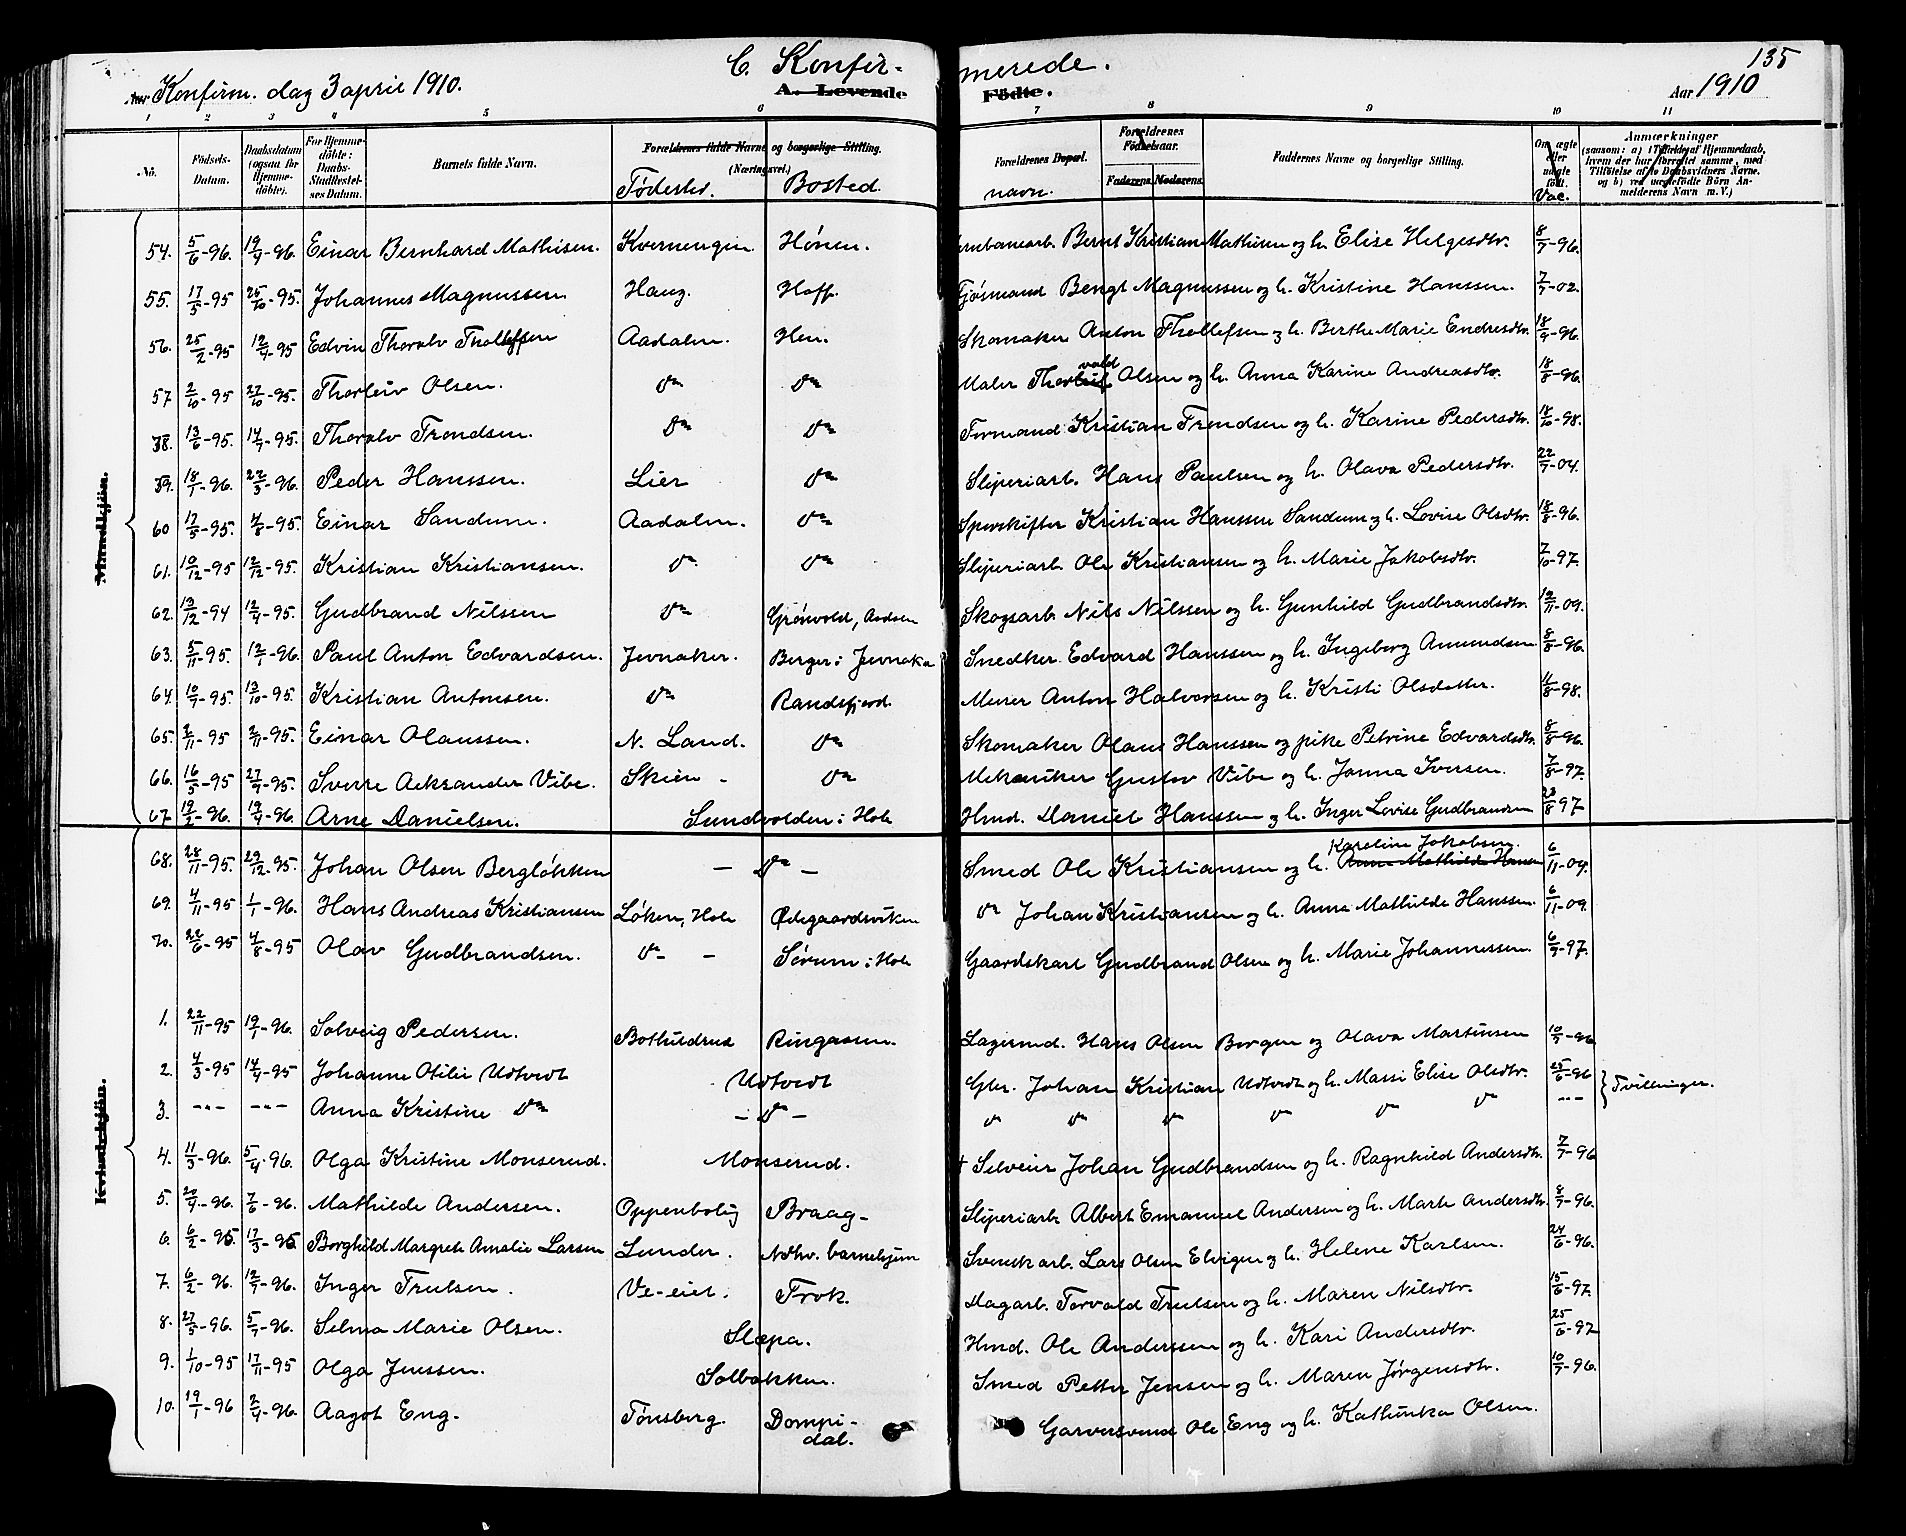 135
C. Konfir- merede.
Konfirm. dag 3 april 1910.
A. Levende Födte.
Aar 1910
1 2 3 4 5 6 7 8 9 10 11
No. Födsels-Datum. Daabsdatum (ogsaa for Hjemmedöbte). For Hjemmedöbte: Daabs-Stadfæstelses Datum. Barnets fulde Navn. Forældrenes fulde Navne og borgerlige Stilling. (Næringsvei.) Fødested. Bosted. Forældrenes Bopæl. navn. Forældrenes Födselsaar. Faderens. Moderens. Faddernes Navne og borgerlige Stilling. Om ægte eller uægte født. Vac. Anmærkninger (saasom: a) i Tilfælde af Hjemmedaab, hvem der har forrettet samme, med Tilføielse af to Daabsvidners Navne, og b) ved uægtefödte Börn Anmelderens Navn m. V.)
Mandkjön.
54. 5/6-96. 19/7-96. Einar Bernhard Mathisen. Kvernengin Hønen. Bernt Kristian Mathisen og h. Elise Helgesdtr. 8/7-96.
55. 17/5-95 25/10-95. Johannes Magnussen Haug. Hoff. Fjøsmand Bengt Magnussen og h. Kristine Hanssen. 7/7-02.
56. 25/2-95 12/4-95 Edvin Thoralv Thollefsen Aadalen. Hen. Skomaker Anton Thollefsen og h. Berthe Marie Endresdtr. 18/9-96.
57 2/10-95 27/10-95. Thorleiv Olsen. do do Maler Thorvald Olsen og h. Anna Karine Andreasdtr. 18/8-96.
58. 13/6-95. 14/7-95. Thoralv Trondsen. do do Formand Kristian Trondsen og h. Karine Pedersdtr. 18/6-98.
59. 18/1-96. 22/3-96. Peder Hanssen. Lier do Sliperiarb. Hans Paulsen og h. Olava Pedersdtr. 22/7-04.
60 17/5-95. 4/8-95. Einar Sandum. Aadalen. do Sporskifter Kristian Hanssen Sandum og h. Lovise Olsdtr. 18/8-96.
61. 10/12-95 12/12-95. Kristian Kristiansen. do do Sliperiarb. Ole Kristiansen og h. Marie Jakobsdtr. 7/10-97.
62. 13/12-94 12/4-95. Gudbrand Nilssen do Grönvold, Aadalen Skogsarb. Nils Nilssen og h. Gunhild Gudbrandsdtr. 12/11-09.
63. 5/11-95. 12/1-96. Paul Anton Edvardsen. Jevnaker. Berger i Jevnaker Snedker Edvard Hanssen og h. Ingeborg Amundsen 8/8-96.
64. 10/9-95. 13/10-95. Kristian Antonsen. do Randsfjord. Murer Anton Halvorsen og h. Kristi Olsdatter. 11/8-98.
65. 2/11-95 2/11-95. Einar Olaussen. N. Land. do Skomaker Olaus Hanssen og pike Petrine Edvardsdtr. 8/8-96.
66. 16/5-95 27/7-95. Sverre Aleksander Vibe. Skien - do Mekaniker Gustav Vibe og h. Janna Iversen. 7/8-97.
67 19/2-96. 19/4-96. Arne Danielsen. Sundvolden i Hole Hmd. Daniel Hanssen og h. Inger Lovise Gudbrandsen 23/8 97
68. 28/11-95. 29/12-95. Johan Olsen Bergløkken — do — Smed Ole Kristiansen og h. Karoline Jakobsen. Anna Mathilde Hansen 6/11-09.
69. 4/11-95 1/1-96. Hans Andreas Kristiansen Løken, Hole Ødegaardsviken do Johan Kristiansen og h. Anna Mathilde Hanssen. 6/11-09.
70. 22/6-95 4/8-95 Olav Gudbrandsen. do - Sørum i Hole Gaardskarl Gudbrand Olsen og h. Marie Johannessen. 6/7-97.
Kvindekjön.
1. 22/11-95 19/1-96. Solveig Pedersen. Bothildrud Ringaasen. Lagermd. Hans Olsen Borgen og Olava Martinsen 10/7-96
2. 4/3-95 14/4-95 Johanne Otilie Udtvedt Udtvedt Gbr. Johan Kristian Udtvedt og h. Massi Elise Olsdtr. 25/6-96 } Tvillinger.
3. -"- -"- Anna Kristine do - do - do do do do do do -"-
4. 11/3-96. 5/4-96. Olga Kristine Monserud. Monserud. + Selveier Johan Gudbrandsen og h. Ragnhild Andersdtr. 7/7-96
5. 20/4-96. 7/6-96. Mathilde Andersen. Oppenbolig Braag- Sliperiarb. Albert Emanuel Andersen og h. Marte Andersdtr. 8/7-96.
6. 6/2-95. 17/3-95 Borghild Margrete Amalie Larsen Lunder. Ndhv. barnehjem Svensk arb. Lars Olsen Elvigen og h. Helene Karlsen. 24/6-96.
7. 6/2-96. 12/7-96. Inger Trulsen. Ve-eiet. Trok. Dagarb. Torvald Trulsen og h. Maren Nilsdtr. 15/6-97.
8. 27/5-96. 5/7-96. Selma Marie Olsen. Slæpa. Hmd. Ole Anderssen og h. Kari Andersdtr. 25/6-97
9. 1/10-95 17/11-95 Olga Jenssen. Solbakken. Smed Petter Jensen og h. Maren Jørgensdtr. 10/7-96.
10. 19/1-96 2/4-96. Aagot Eng. Tønsberg. Dompidal. Garversvend Ole Eng og h. Kathinka Olsen.